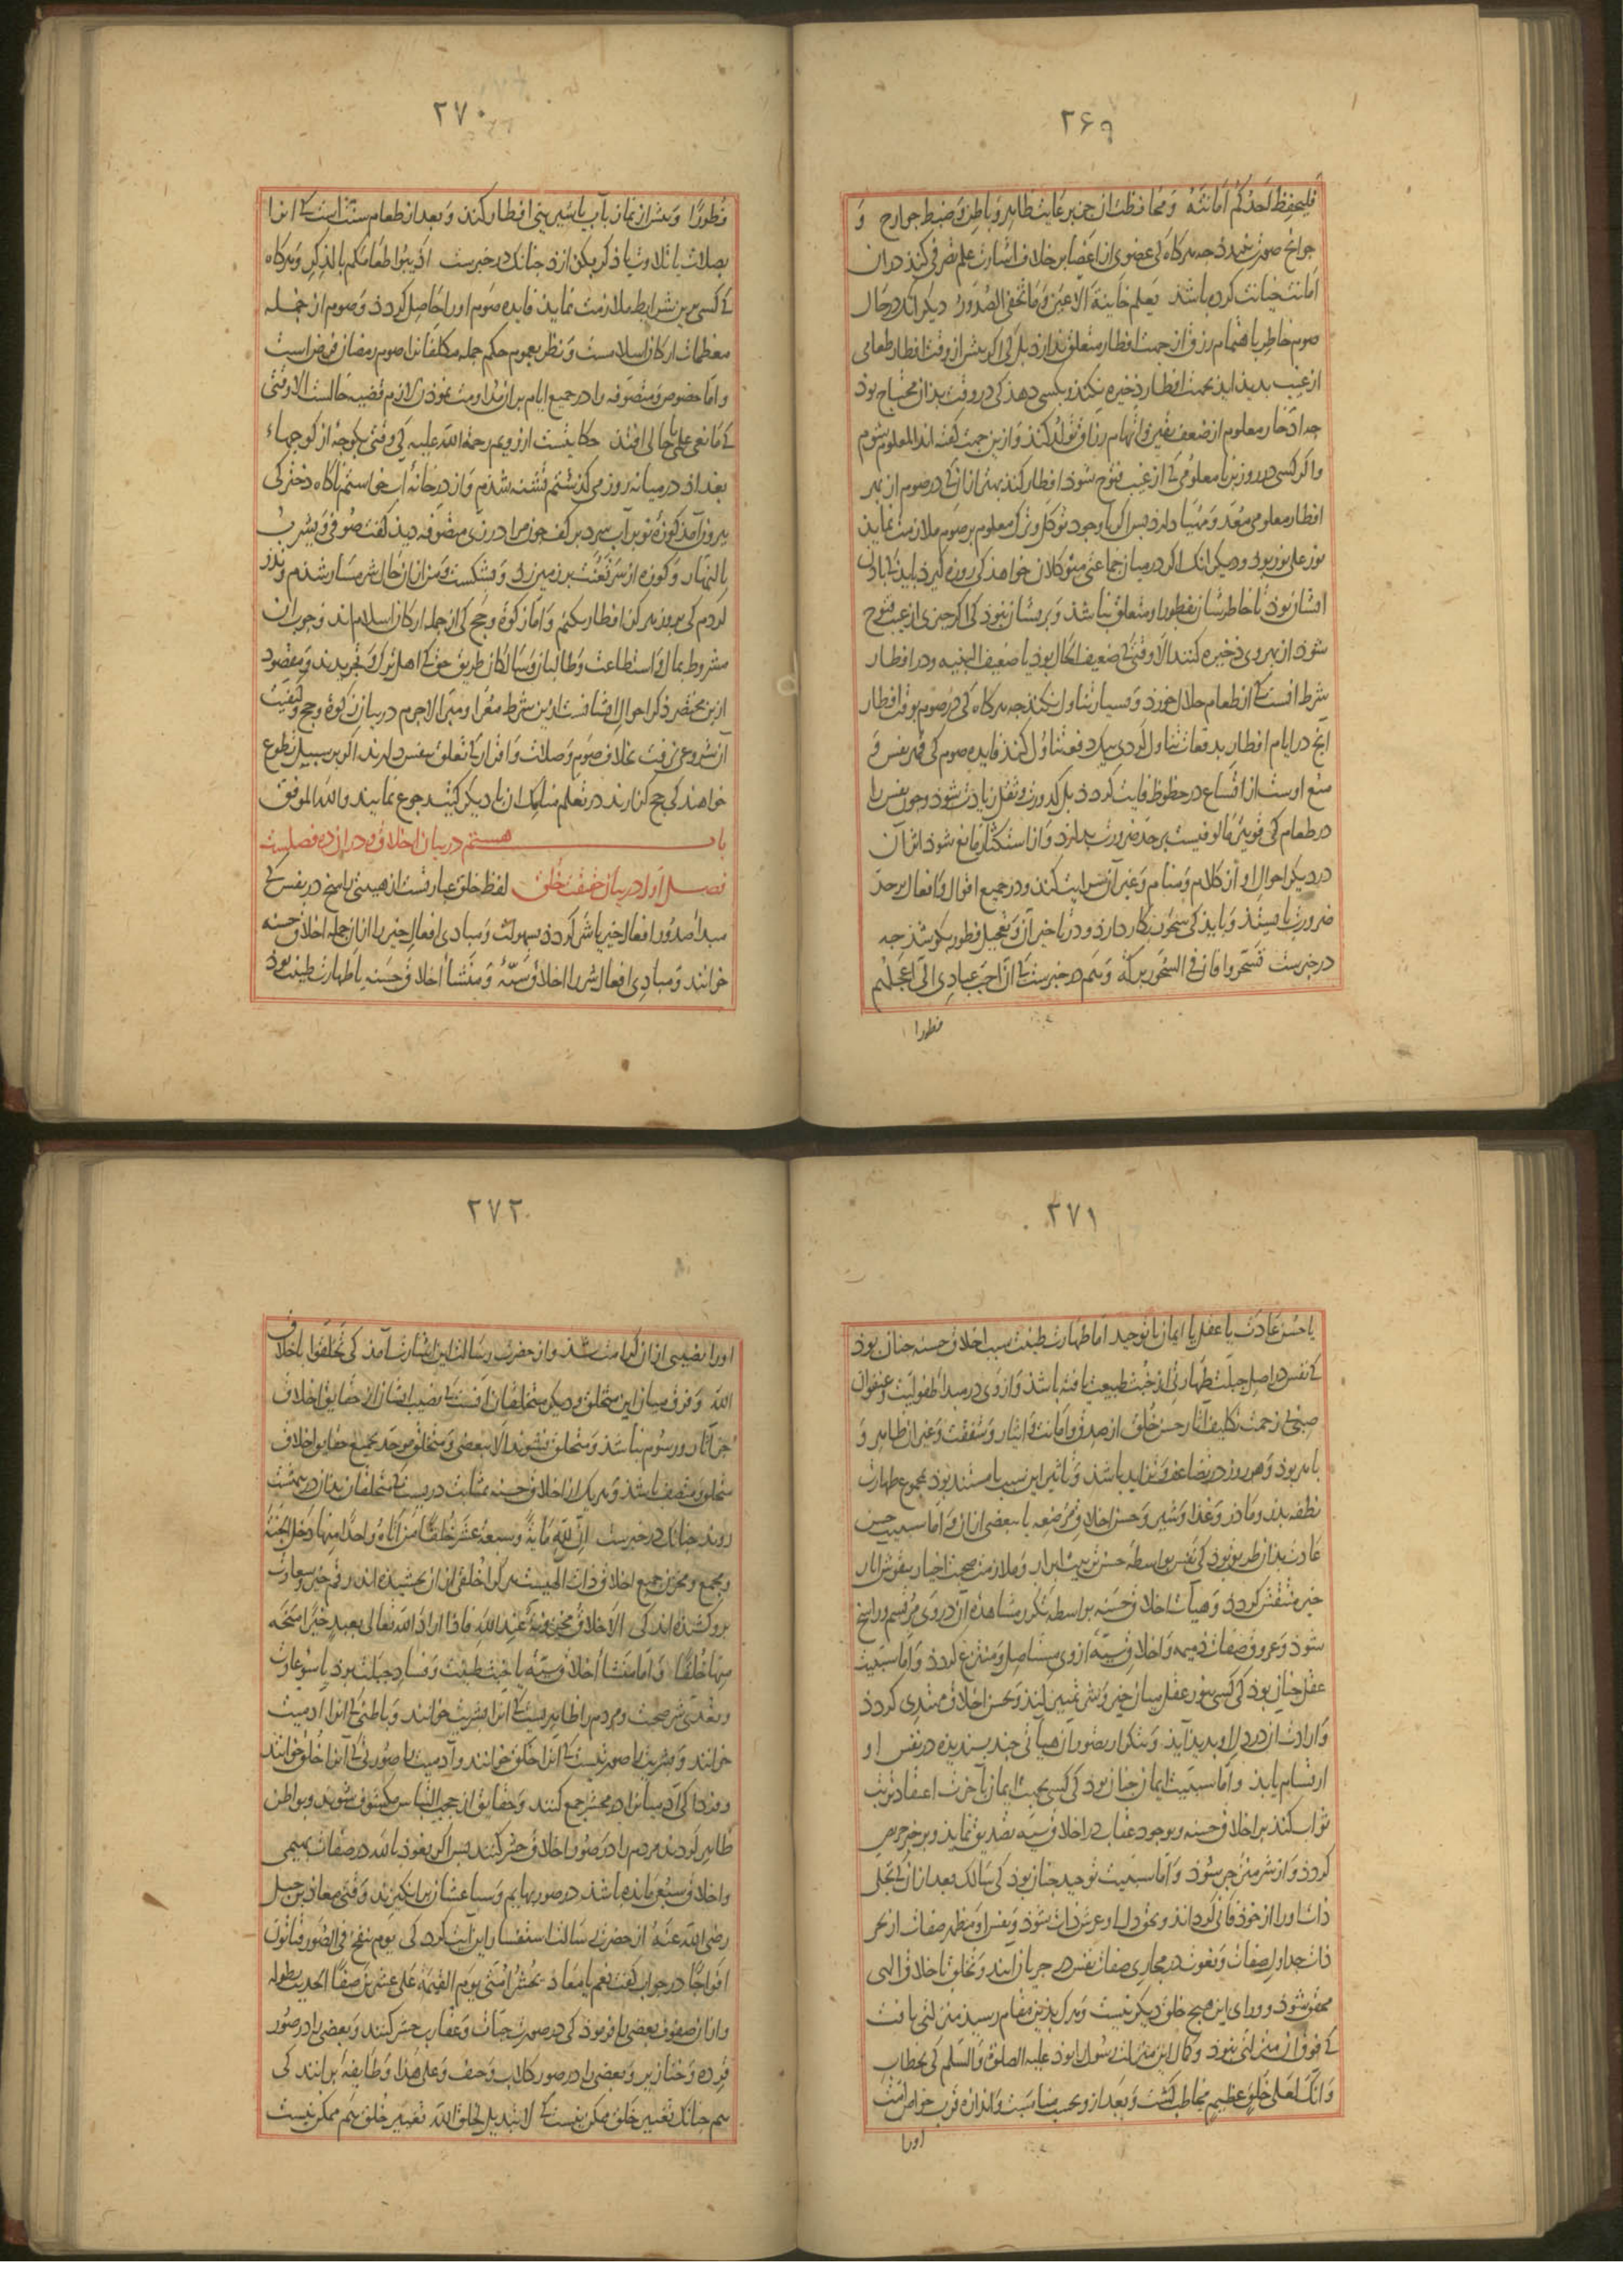 ۲۶۹
فلیحفظ احدکم امانته و محافظت آن جز برعایت ظاهر و باطن و ضبط جوارح و
جوانح صورت نبندد جه هرکاه کی عضوی از اعضا بر خلاف اشارت علم تصرفی کند در ان
امانت خیانت کرده باشد یعلم خاینة الاعین و ما تخفی الصدور دیکر انک در حال
صوم خاطر باهتمام رزق از جهت افطار متعلق ندارد بل کی اکر بیش از وقت افطار طعامی
از غیب بدید اید بجهت افطار ذخیره نکند و بکسی دهد کی در وقت بدان محتاج بود
جه ادخار معلوم از ضعف یقین و اتهام رزاق تولد کند و ازین جهت کفته اند المعلوم شوم
واکر کسی در روز بی معلومی کی از غیب فتوح شود افطار کند بهتر از انک در صوم از بهر
افطار معلومی معد و مهیا دارد بس اکر با وجود توکل و ترک معلوم بر صوم ملازمت نماید
نور علی نور بود و دیکر انک اکر در میان جماعتی متوکلان خواهد کی روزه کیرد باید کی باذن
ایشان بود تا خاطر ایشان بفطور او متعلق نباشد و بریشان نبود کی اکر جیزی از غیب فتوح
شود از بهر وی ذخیره کنند الا وقتی کی ضعیف الحال بود یا ضعیف البنیه و در افطار
شرط انست کی از طعام حلال خورد و بسیار تناول نکند جه هرکاه کی در صوم بوقت افطار
انج در ایام افطار بدفعات تناول کردی بیکدفعه تناول کند فایده صوم کی قهر نفس و
منع اوست از اتساع در حظوظ فایت کردد بل کدورت و ثقل زیادت شود و جون نفس را
در طعام کی قویترین مالوفیست بر حد ضرورت بدارد و از استکثار مانع شود اثر آن
در دیکر احوال او از کلام و منام و غیر آن سرایت کند و در جمیع اقوال و افعال بر حد
ضرورت بایستد و باید کی سحور بکار دارد و در تاخیر آن و تعجیل فطور بکوشد جه
در خبرست تسحروا فان فی السحور برکة و هم در خبرست کی ان احب عبادی الی اعجلهم
فطورا
۲۷۰
فطورا و بیش از نماز بآب یا شیرینی افطار کند و بعد از طعام سنت انست کی انرا
بصلات یا تلاوت یا ذکر بکدازد جنانک در خبرست اذیبوا طعامکم بالذکر و هرکاه
کی کسی برین شرایط ملازمت نماید فایده صوم او را حاصل کردد و صوم از جمله
معظمات ارکان اسلامست و نظر بعموم حکم جمله مکلفانرا صوم رمضان فرض است
واما خصوص متصوفه را در جمیع ایام بران مداومت نمودن لازم قضیه حالست الا وقتی
کی مانعی علی حالی افتد حکایتست از رویم رحمة الله علیه کی وقتی بکوجه از کوجهاء
بغداد در میانه روز می کذشتم تشنه شدم و از در خانه اب خواستم ناکاه دخترکی
بیرون آمد کوزه نو بر آب سرد بر کف جون مرا در زی متصوفه دید کفت صوفی و یشرب
بالنهار و کوزه از سر تعنت بر زمین زد و بشکست و من از ان حال شرمسار شدم و نذر
کردم کی بروز هرکز افطار نکنم و اما زکوة و حج کی از جمله ارکان اسلام اند وجوب ان
مشروط بمال و استطاعت و طالبان و سالکان طریق حق کی اهل ترک و تجرید اند و مقصود
ازین مختصر ذکر احوال ایشانست ازین شرط معرا و مبرا لاجرم در بیان زکوة و حج و کیفیت
آن شروعی نرفت بخلاف صوم و صلات و اقرار کی تعلق بنفس دارند اکر بر سبیل تطوع
خواهند کی حج کزارند در تعلم مناسک ان با دیکر کتب رجوع نمایند والله الموفق
باب هشتم در بیان اخلاق و در ان ده فصلست
فصل اول در بیان حقیقت خلق لفظ خلق عبارتست از هیئتی راسخ در نفس کی
مبدأ صدور افعال خیر یا شر کردد بسهولت و مبادی افعال خیر را از ان جمله اخلاق حسنه
خوانند و مبادی افعال شر را اخلاق سیئه و منشأ اخلاق حسنه یا طهارت طینت بود
۲۷۱
یا حسن عادت یا عقل یا ایمان یا توحید اما طهارت طینت سبب اخلاق حسنه جنان بود
کی نفس در اصل جبلت طهارتی از خبث طبیعت یافته باشد و از وی در مبدأ طفولیت و عنفوان
صبی بی زحمت تکلیف آثار حسن خلق از صدق و امانت و ایثار و شفقت و غیر ان ظاهر و
باهر بود و هر روز در تضاعف و تزاید باشد و تاثیر این سبب یا مستند بود بمجموع طهارت
نطفه بدر و مادر و غذا و شیر و حسن اخلاق مرضعه یا ببعضی از ان و اما سببیت حسن
عادت بدان طریق بود کی نفس بواسطه حسن تربیت ابرار و ملازمت صحبت اخیار بنقوش اثار
خیر منتقش کردد و هیات اخلاق حسنه بواسطه تکرر مشاهده آن در وی مرتسم و راسخ
شود و عروق صفات ذمیمه و اخلاق سیئه از وی مستاصل و منتزع کردد و اما سببیت
عقل جنان بود کی کسی بنور عقل میان خیر و شر تمییز کند و بحسن اخلاق مهتدی کردد
و ارادت ان در دل او بدید آید و بتکرار تصور ان هیاتی جند بسندیده در نفس او
ارتسام یابد و اما سببیت ایمان جنان بود کی کسی بجهت ایمان بآخرت اعتقاد ترتب
ثواب کند بر اخلاق حسنه و بوجود عقاب در اخلاق سیئه تصدیق نماید و بر خیر حریص
کردد و از شر منزجر شود و اما سببیت توحید جنان بود کی سالک بعد از ان کی تجلی
ذات او را از خود فانی کرداند و بحق دل او عرش ذات شود و نفس او مظهر صفات از بحر
ذات جداول صفات و نعوت در مجاری صفات نفس در جریان آیند و تخلق باخلاق الهی
محقق شود و ورای این هیچ خلق دیکر نیست و هرک بدین مقام رسید منزلتی یافت
کی فوق ان منزلتی نبود و کمال این منزلت رسول را بود علیه الصلوة والسلم کی بخطاب
و انک لعلی خلق عظیم مخاطب کشت و بعد از و بحسب مناسبت و اندازه قرب خواص امت
اورا
۲۷۲
اورا نصیبی از ان کرامت شد و از حضرت رسالت این اشارت آمد کی تخلقوا باخلاق
الله و فرق میان این متخلق و دیکر متخلقان انست کی نصیب ایشان از حقایق اخلاق
جز آثار و رسوم نباشد و متخلق نشوند الا ببعضی و متخلق موحد بجمیع حقایق اخلاق
متخلق و متصف باشد و هر یک از اخلاق حسنه بمثابت دریست کی متخلقان بدان در بهشت
روند جنانک در خبرست ان لله مایة و سبعة عشر خلقا من اتاه واحدا منها دخل الجنة
و مجمع و مخزن جمیع اخلاق ذات الهیست هر کرا خلقی از ان بخشیده اند رقم خیر و سعادت
برو کشیده اند کی الاخلاق مخزونة عند الله فاذا اراد الله تعالی بعبد خیرا منحه
منها خلقا و اما منشأ اخلاق سیئه یا خبث طینت و فساد جبلت بود یا سوء عادت
و تعدی شر صحبت و مردم را ظاهریست کی انرا بشریت خوانند و باطنی کی انرا ادمیت
خوانند و بشریت را صورتیست کی انرا خلق خوانند و آدمیت را صورتی کی آنرا خلق خوانند
و فردا کی آدمیانرا در محشر جمع کنند و حقایق از حجب التباس مکشوف شوند و بواطن
ظاهر کردند مردم را در صور اخلاق حشر کنند بس اکر نعوذ بالله در صفات بهیمی
و اخلاق سبعی مانده باشد در صور بهایم و سباعشان بر انکیزند و وقتی معاذ بن جبل
رضی الله عنه از حضرت رسالت استفسار این آیت کرد کی یوم ینفخ فی الصور فتاتون
افواجا در جواب کفت نعم یا معاذ یحشر امتی یوم القیمة علی عشرین صفا الحدیث بطوله
و از ان صفوف بعضی را فرمود کی در صورت حیات و عقارب حشر کنند و بعضی را در صور
قرده و خنازیر و بعضی را در صور کلاب و جیف و علی هذا و طایفه بر انند کی
هم جنانک تغییر خلق ممکن نیست کی لا تبدیل لخلق الله تغییر خلق هم ممکن نیست